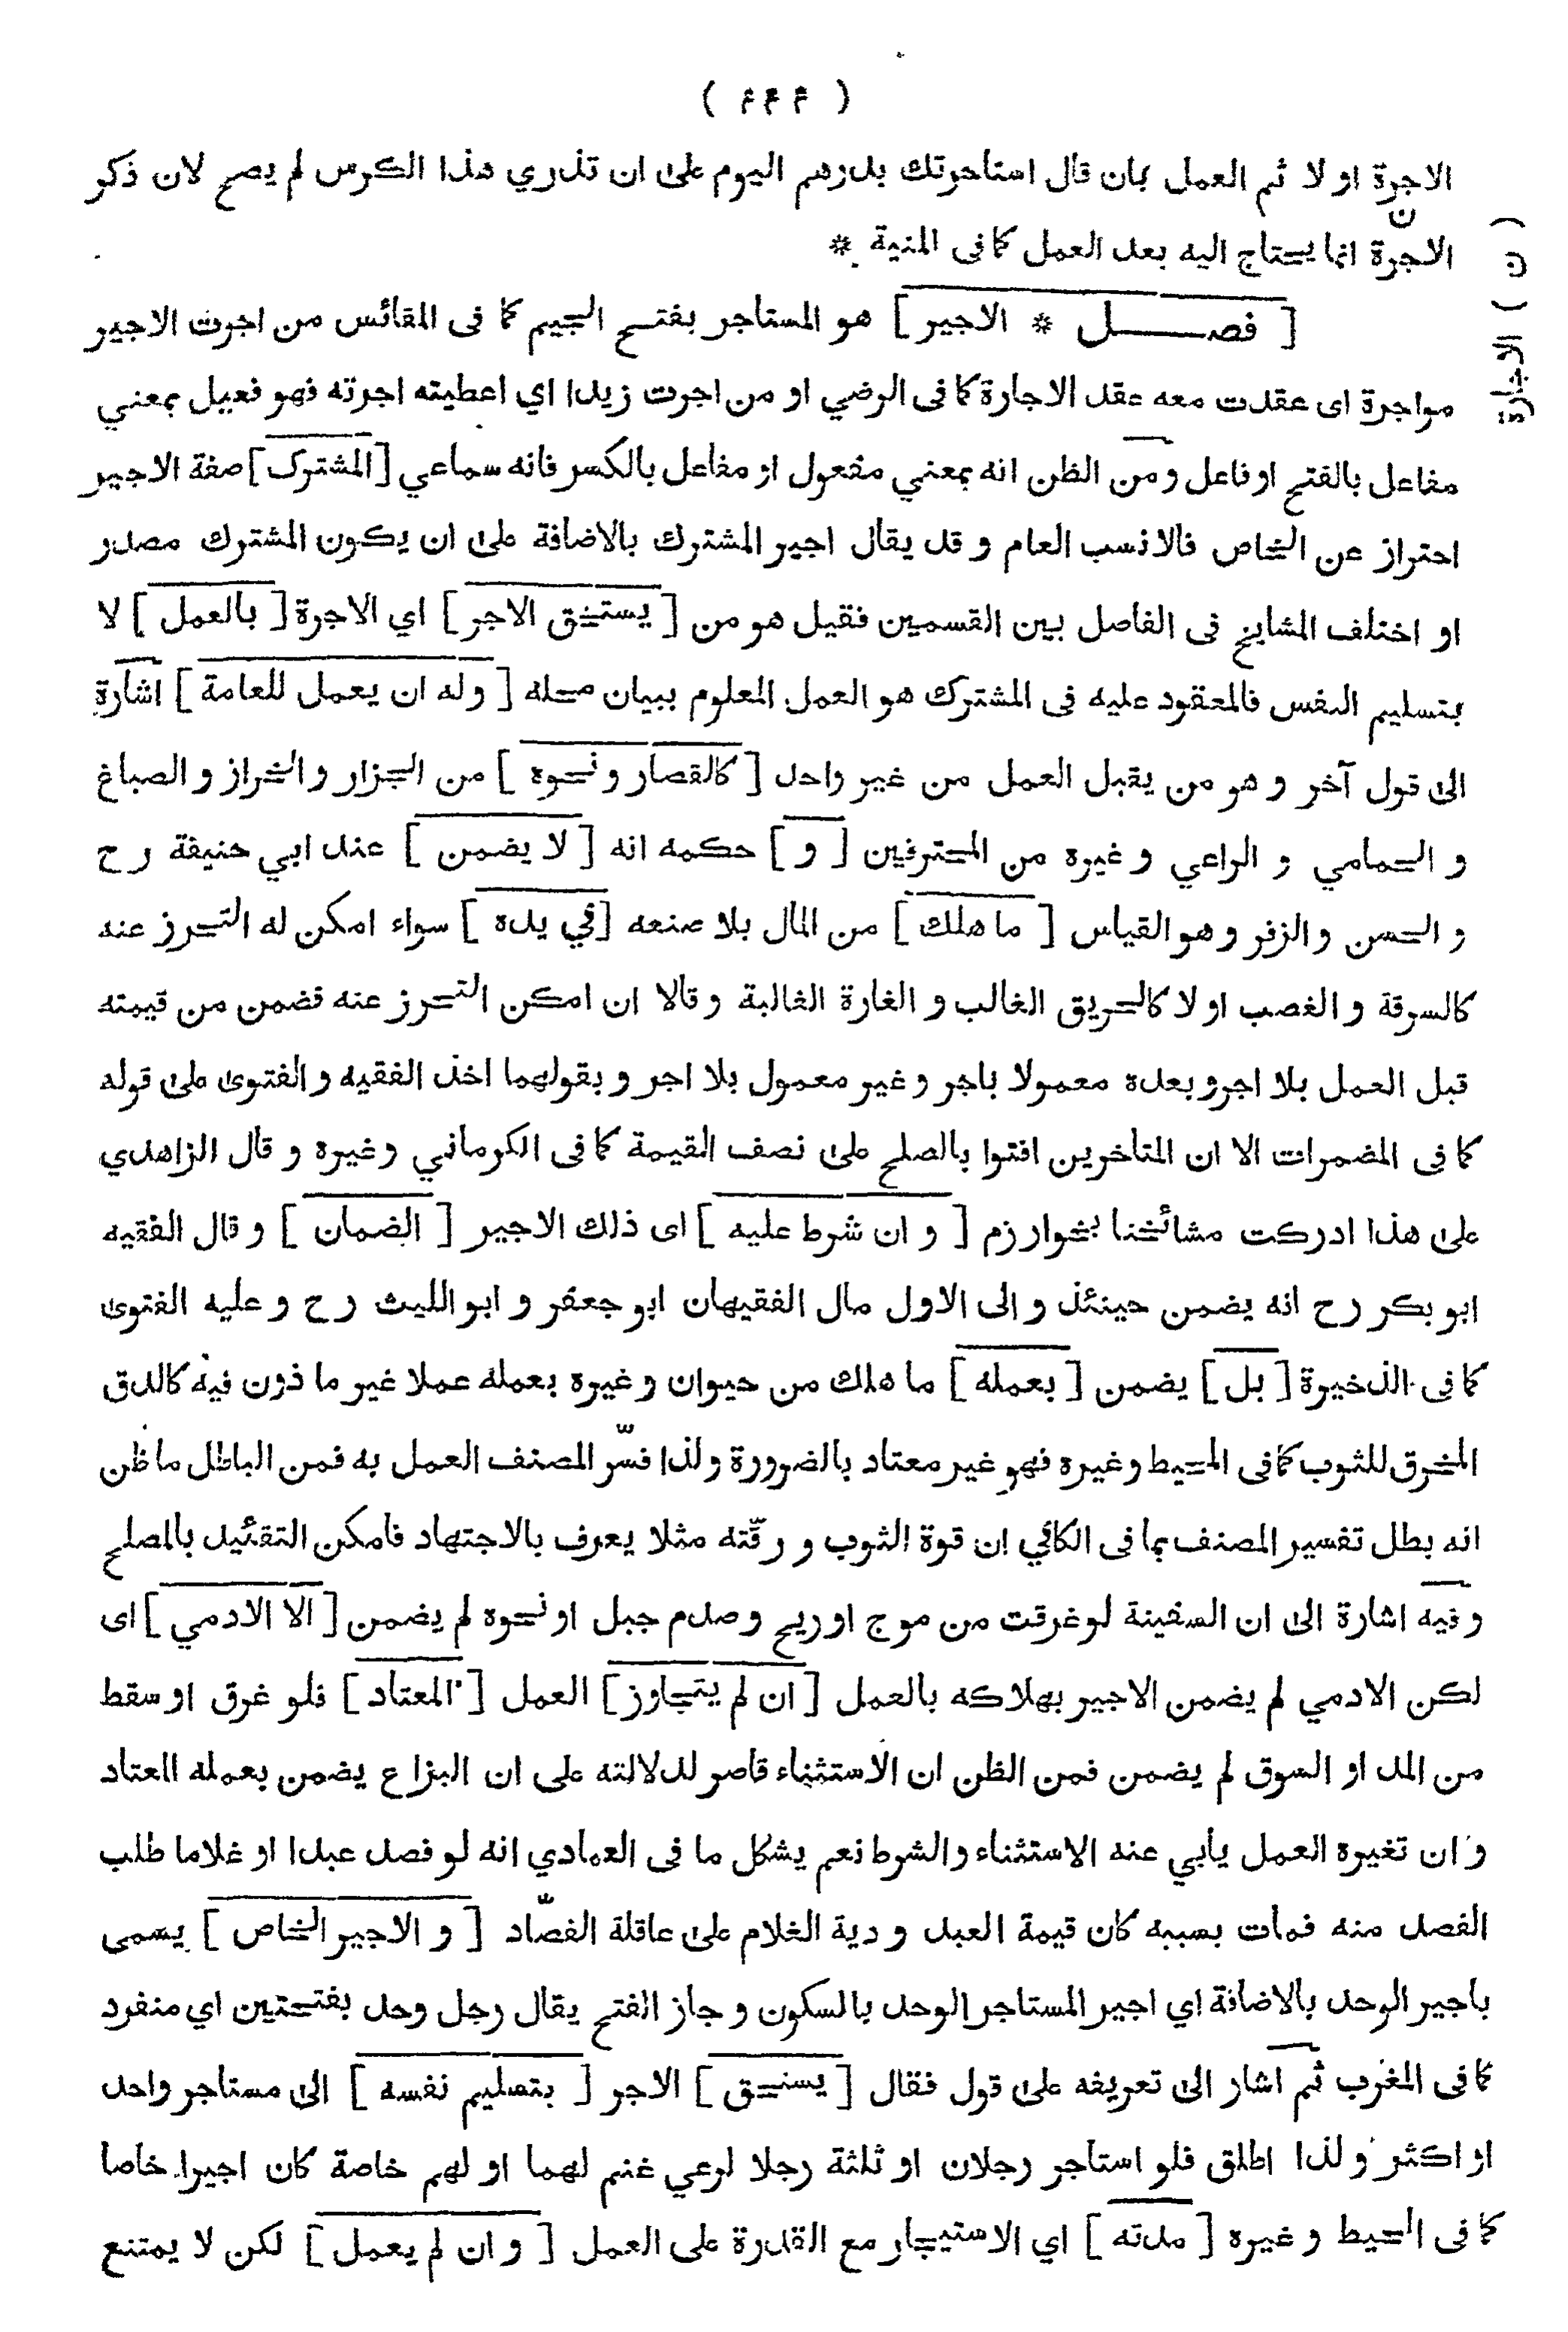 ( ۴۴۴ )
الاجرة او لا ثم العمل بان قال استاجرتك بدرهم اليوم على ان تذري هذا الكرس لم يصح لان ذكر
الاجرة انما يحتاج اليه بعد العمل كما فى المنية *
( ن ) الاجارة
[ فصل * الاجير ] هو المستاجر بفتح الجيم كما فى المقائس من اجرت الاجير
مواجرة اى عقدت معه عقد الاجارة كما فى الرضي او من اجرت زيدا اي اعطيته اجرته فهو فعيل بمعني
مفاعل بالفتح او فاعل و من الظن انه بمعني مفعول او مفاعل بالكسر فانه سماعي [ المشترك ] صفة الاجير
احتراز عن الخاص فالانسب العام و قد يقال اجير المشترك بالاضافة على ان يكون المشترك مصدر
او اختلف المشايخ فى الفاصل بين القسمين فقيل هو من [ يستحق الاجر ] اي الاجرة [ بالعمل ] لا
بتسليم النفس فالمعقود عليه فى المشترك هو العمل المعلوم ببيان محله [ وله ان يعمل للعامة ] اشارة
الى قول آخر و هو من يقبل العمل من غير واحد [ كالقصار و نحوه ] من الجزار و الخراز و الصباغ
و الحمامي و الراعي و غيره من المحترفين [ و ] حكمه انه [ لا يضمن ] عند ابي حنيفة رح
و الحسن و الزفر و هو القياس [ ما هلك ] من المال بلا صنعه [ في يده ] سواء امكن له التحرز عنه
كالسرقة و الغصب او لا كالحريق الغالب و الغارة الغالبة و قالا ان امكن التحرز عنه فضمن من قيمته
قبل العمل بلا اجر و بعده معمولا باجر و غير معمول بلا اجر و بقولهما اخذ الفقيه و الفتوى على قوله
كما فى المضمرات الا ان المتأخرين افتوا بالصلح على نصف القيمة كما فى الكرماني وغيره و قال الزاهدي
على هذا ادركت مشائخنا بخوارزم [ و ان شرط عليه ] اى ذلك الاجير [ الضمان ] و قال الفقيه
ابو بكر رح انه يضمن حينئذ و الى الاول مال الفقيهان ابو جعفر و ابو الليث رح و عليه الفتوى
كما فى الذخيرة [ بل ] يضمن [ بعمله ] ما هلك من حيوان و غيره بعمله عملا غير ما ذون فيه كالدق
المخرق للثوب كما فى المحيط وغيره فهو غير معتاد بالضرورة ولذا فسّر المصنف العمل به فمن الباطل ما ظن
انه بطل تفسير المصنف بما فى الكافي ان قوة الثوب و رقّته مثلا يعرف بالاجتهاد فامكن التقئيد بالمصلح
و فيه اشارة الى ان السفينة لو غرقت من موج او ريح و صدم جبل او نحوه لم يضمن [ الا الادمي ] اى
لكن الادمي لم يضمن الاجير بهلاكه بالعمل [ ان لم يتجاوز ] العمل [ المعتاد ] فلو غرق او سقط
من المد او السوق لم يضمن فمن الظن ان الاستثناء قاصر لدلالته على ان البزاع يضمن بعمله العتاد
و ان تغيره العمل يأبي عنه الاستثناء والشرط نعم يشكل ما فى العمادي انه لو فصد عبدا او غلاما طلب
الفصد منه فمات بسببه كان قيمة العبد و دية الغلام على عاقلة الفصّاد [ و الاجير الخاص ] يسمى
باجير الوحد بالاضافة اي اجير المستاجر الوحد بالسكون و جاز الفتح يقال رجل وحد بفتحتين اي منفرد
كما فى المغرب ثم اشار الى تعريفه على قول فقال [ يستحق ] الاجر [ بتسليم نفسه ] الى مستاجر واحد
او اكثر و لذا اطلق فلو استأجر رجلان او ثلثة رجلا لرعي غنم لهما او لهم خاصة كان اجيرا خاصا
كما فى المحيط و غيره [ مدته ] اي الاستيجار مع القدرة على العمل [ و ان لم يعمل ] لكن لا يمتنع